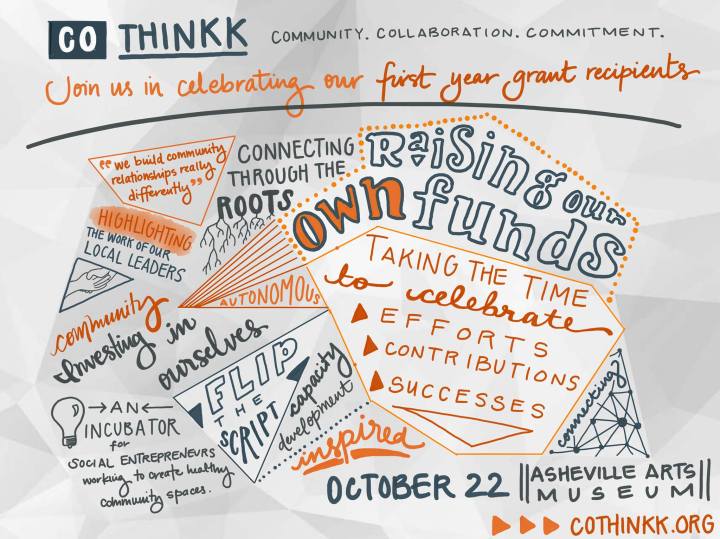 CO THINKK COMMUNITY. COLLABORATION. COMMITMENT.
Join us in celebrating our first year grant recipients
"we build community
relationships really
differently"
CONNECTING
THROUGH THE
ROOTS
RAISING OUR
OWN FUNDS
HIGHLIGHTING
THE WORK OF OUR
LOCAL LEADERS
AUTONOMOUS
community
Investing in
ourselves
TAKING THE TIME
to celebrate
EFFORTS
CONTRIBUTIONS
SUCCESSES
FLIP
THE
SCRIPT
capacity
development
connecting
AN
INCUBATOR
for
SOCIAL ENTREPRENEURS
working to create healthy
community spaces.
inspired
OCTOBER 22
ASHEVILLE ARTS
MUSEUM
COTHINKK.ORG